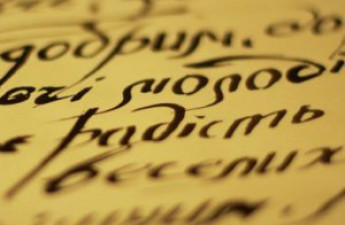 добрим. до
молоді
радість
веселих